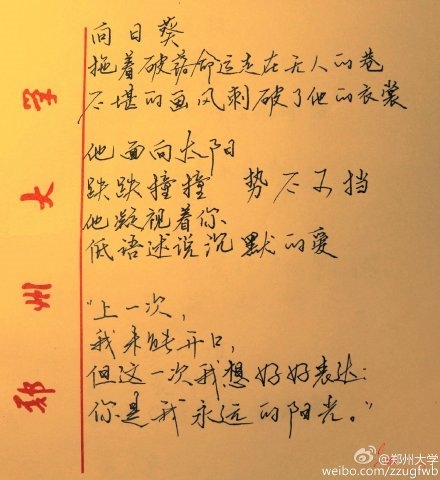 郑州大学
向日葵
拖着破落命运走在无人的巷
不堪的画风刺破了他的衣裳
他面向太阳
跌跌撞撞 势不可挡
他凝视着你
低语述说沉默的爱
“上一次，
我未能开口，
但这一次我想好好表达：
你是我永远的阳光。”
@郑州大学
weibo.com/zzugfwb